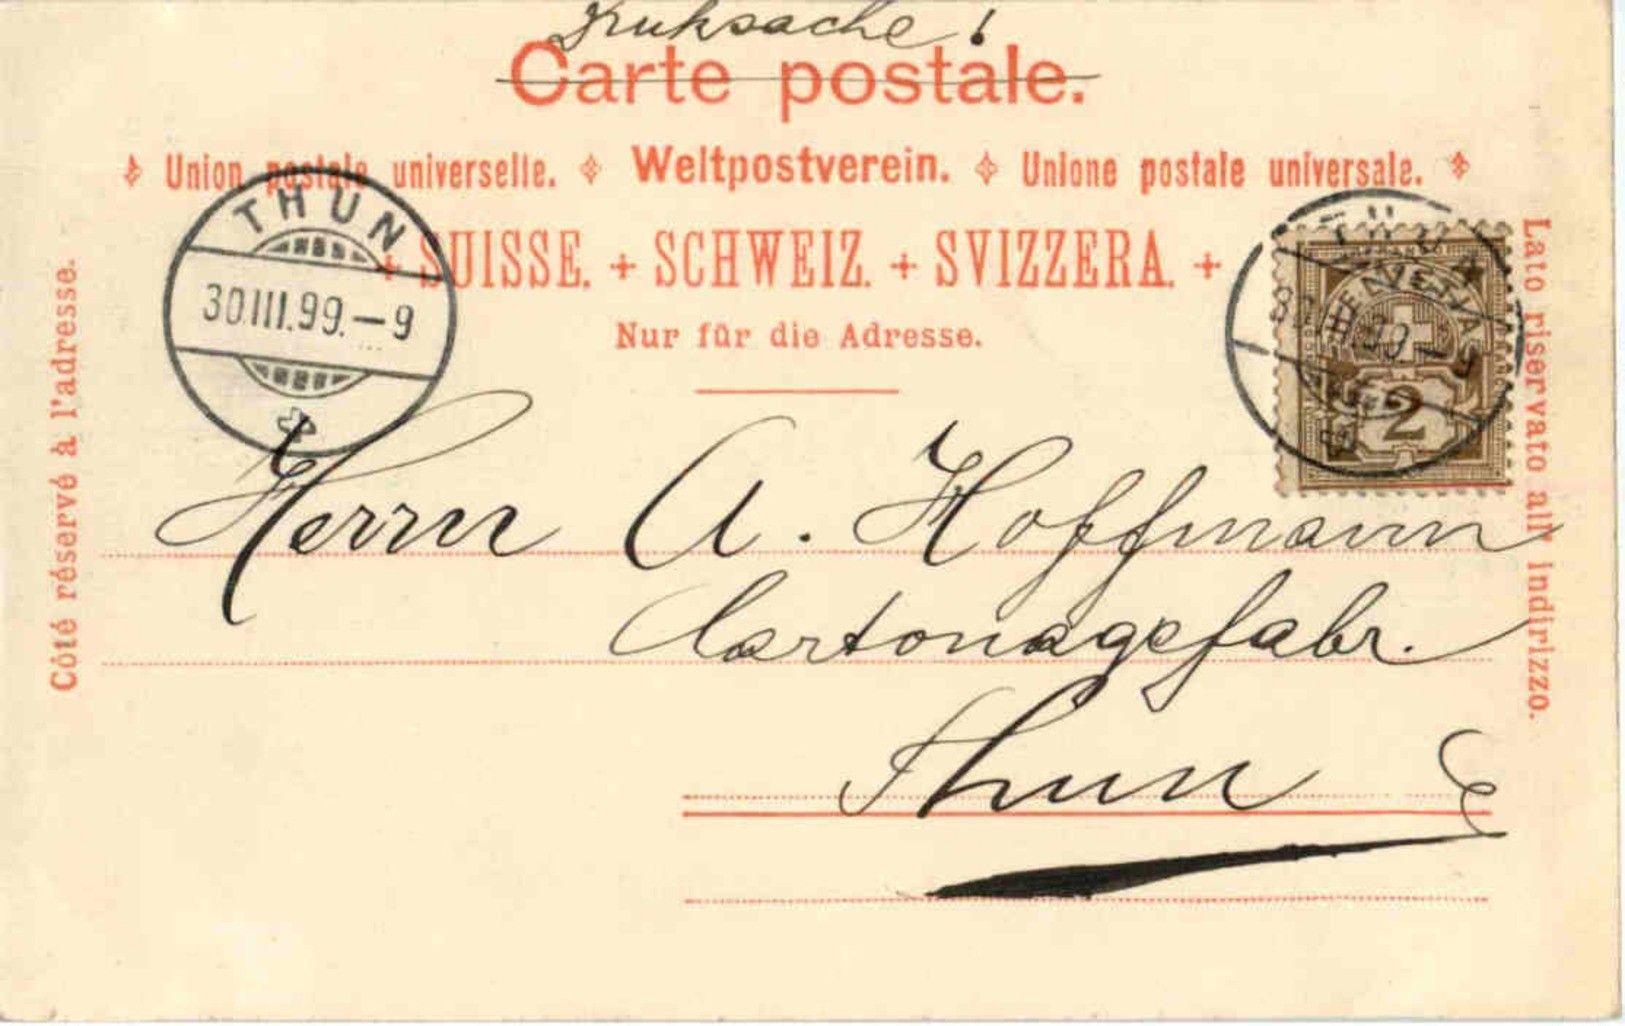 Druksache!
Carte postale.
Union postale universelle. Weltpostverein. Unione postale universale.
+ SUISSE. + SCHWEIZ. + SVIZZERA. +
Nur für die Adresse.
Côté réservé à l'adresse.
Lato riservato all' indirizzo.
THUN
30.III.99.–9
FRANCO
HELVETIA
2
Herrn A. Hoffmann
Cartonagefabr.
Thun